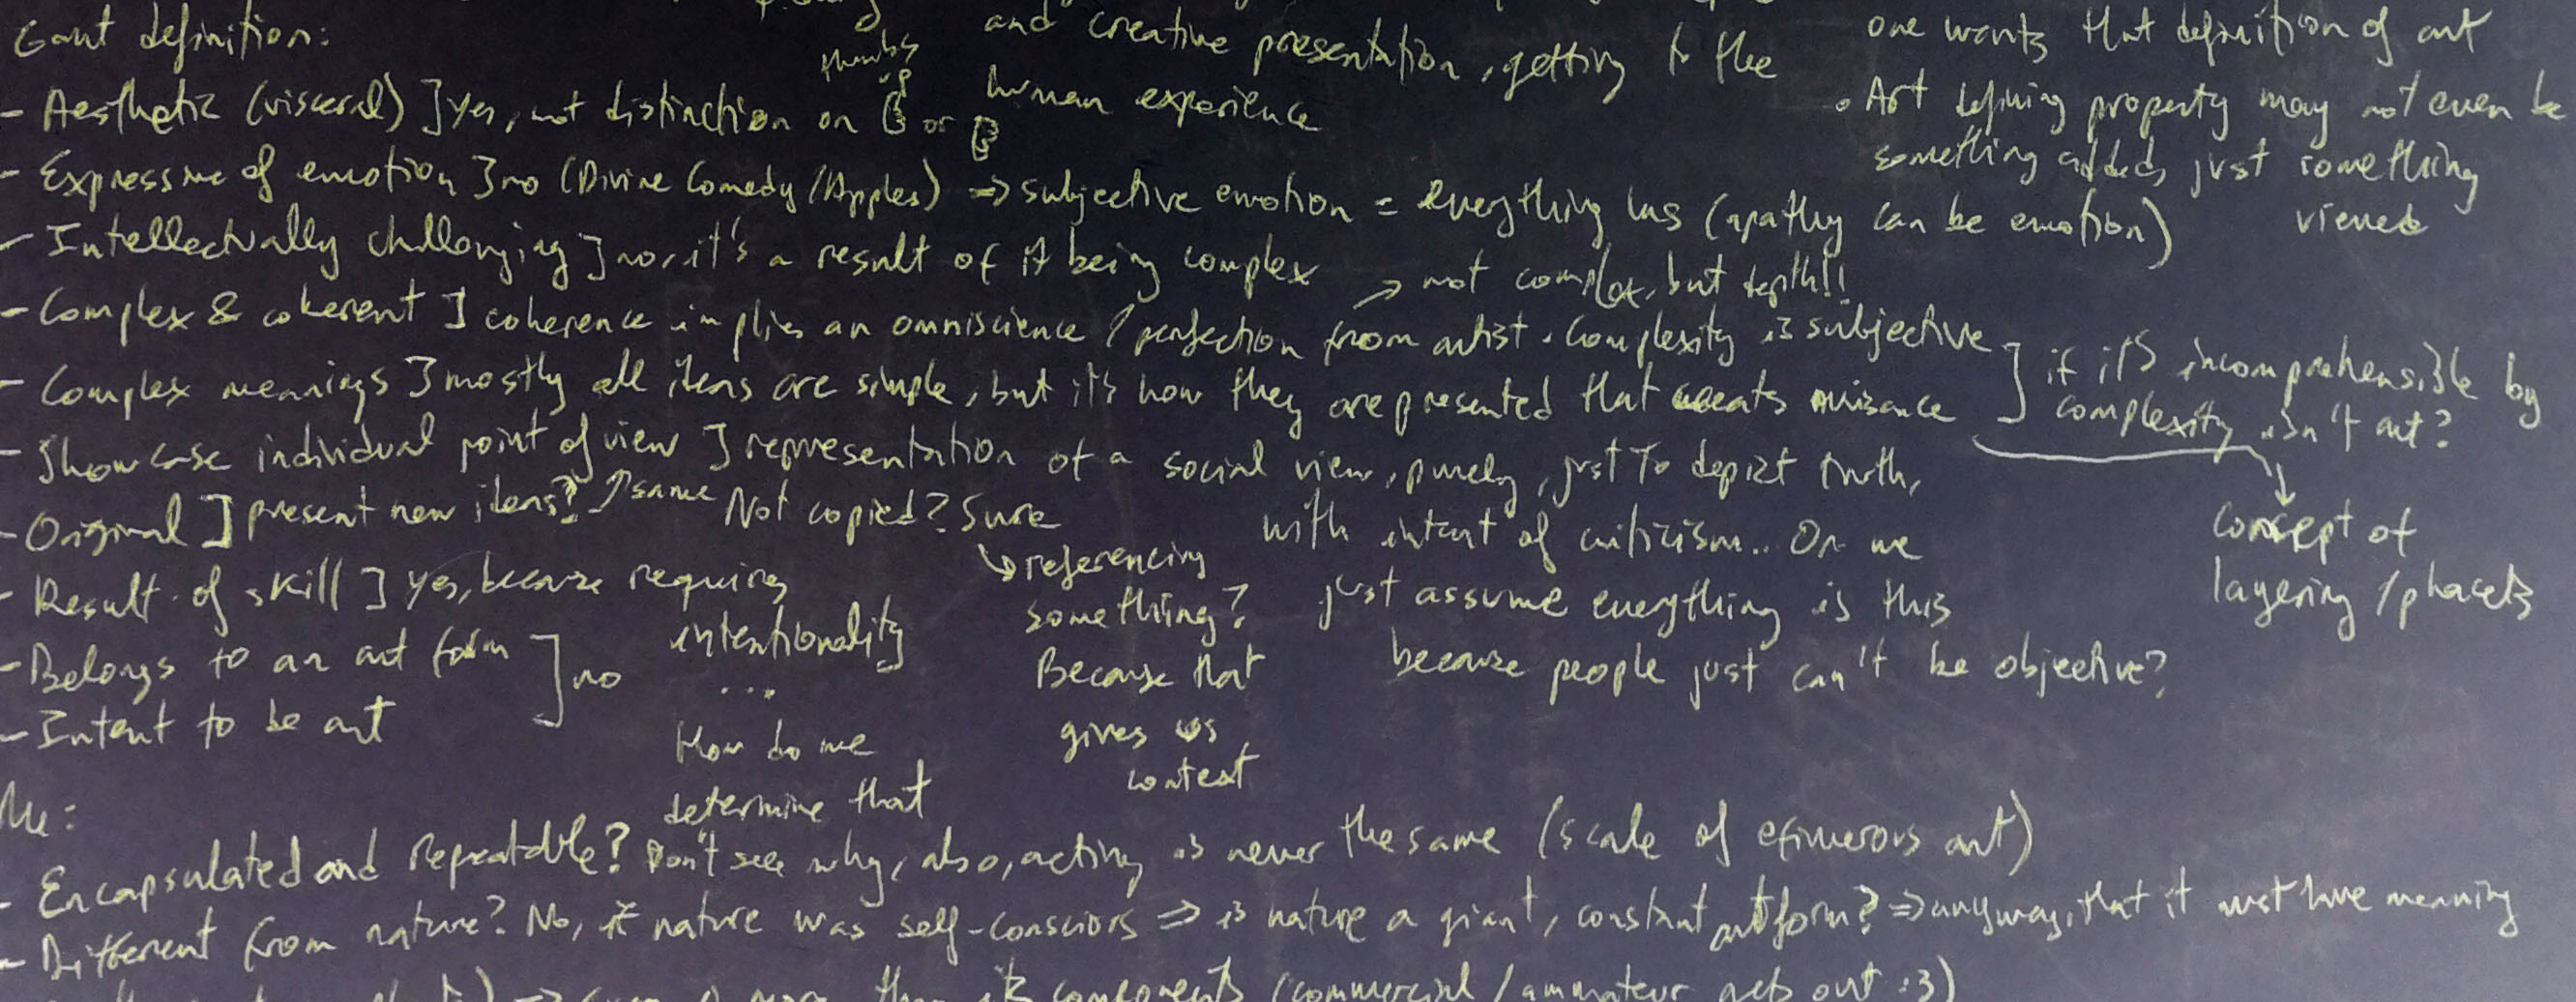 and creative presentation, getting to the
human experience
one wants that definition of art
• Art defining property may not even be
something added, just something
viewed
Gaut definition:
thumbs
up
- Aesthetic (visceral) ] yes, not distinction on or
- Expressive of emotion ] no (Divine Comedy/Apples) => subjective emotion = everything has (apathy can be emotion)
- Intellectually challenging ] no, it's a result of it being complex
-> not complex, but depth!!
- Complex & coherent ] coherence implies an omniscience / perfection from artist. Complexity is subjective
- Complex meanings ] mostly all ideas are simple, but it's how they are presented that creats nuisance
] if it's incomprehensible by
complexity isn't art?
concept of
layering / phacets
- Showcase individual point of view ] representation of a social view, purely, just to depict truth,
with intent of criticism... Or we
just assume everything is this
because people just can't be objective?
- Original ] present new ideas? ↗ same Not copied? Sure
↳ referencing
something?
Because that
gives us
context
- Result of skill ] yes, because requires
intentionality
...
How do we
determine that
- Belongs to an art form
- Intent to be art
] no
Me:
- Encapsulated and Repeatable? Don't see why, also, acting is never the same (scale of efimerous art)
- Different from nature? No, if nature was self-conscious => is nature a giant, constant art form? => anyway, that it must have meaning
more than its components (commercial / ammateur gets out :3)